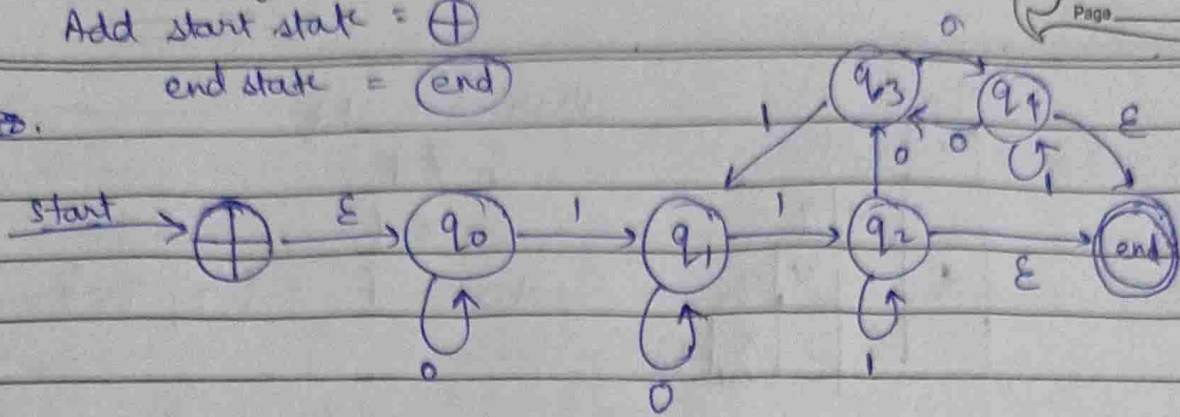 Page
Add start state = ⊕
end state = end
0
q3
q4
1
0
0
ε
1
start
ε
q0
1
q1
1
q2
ε
end
0
0
1